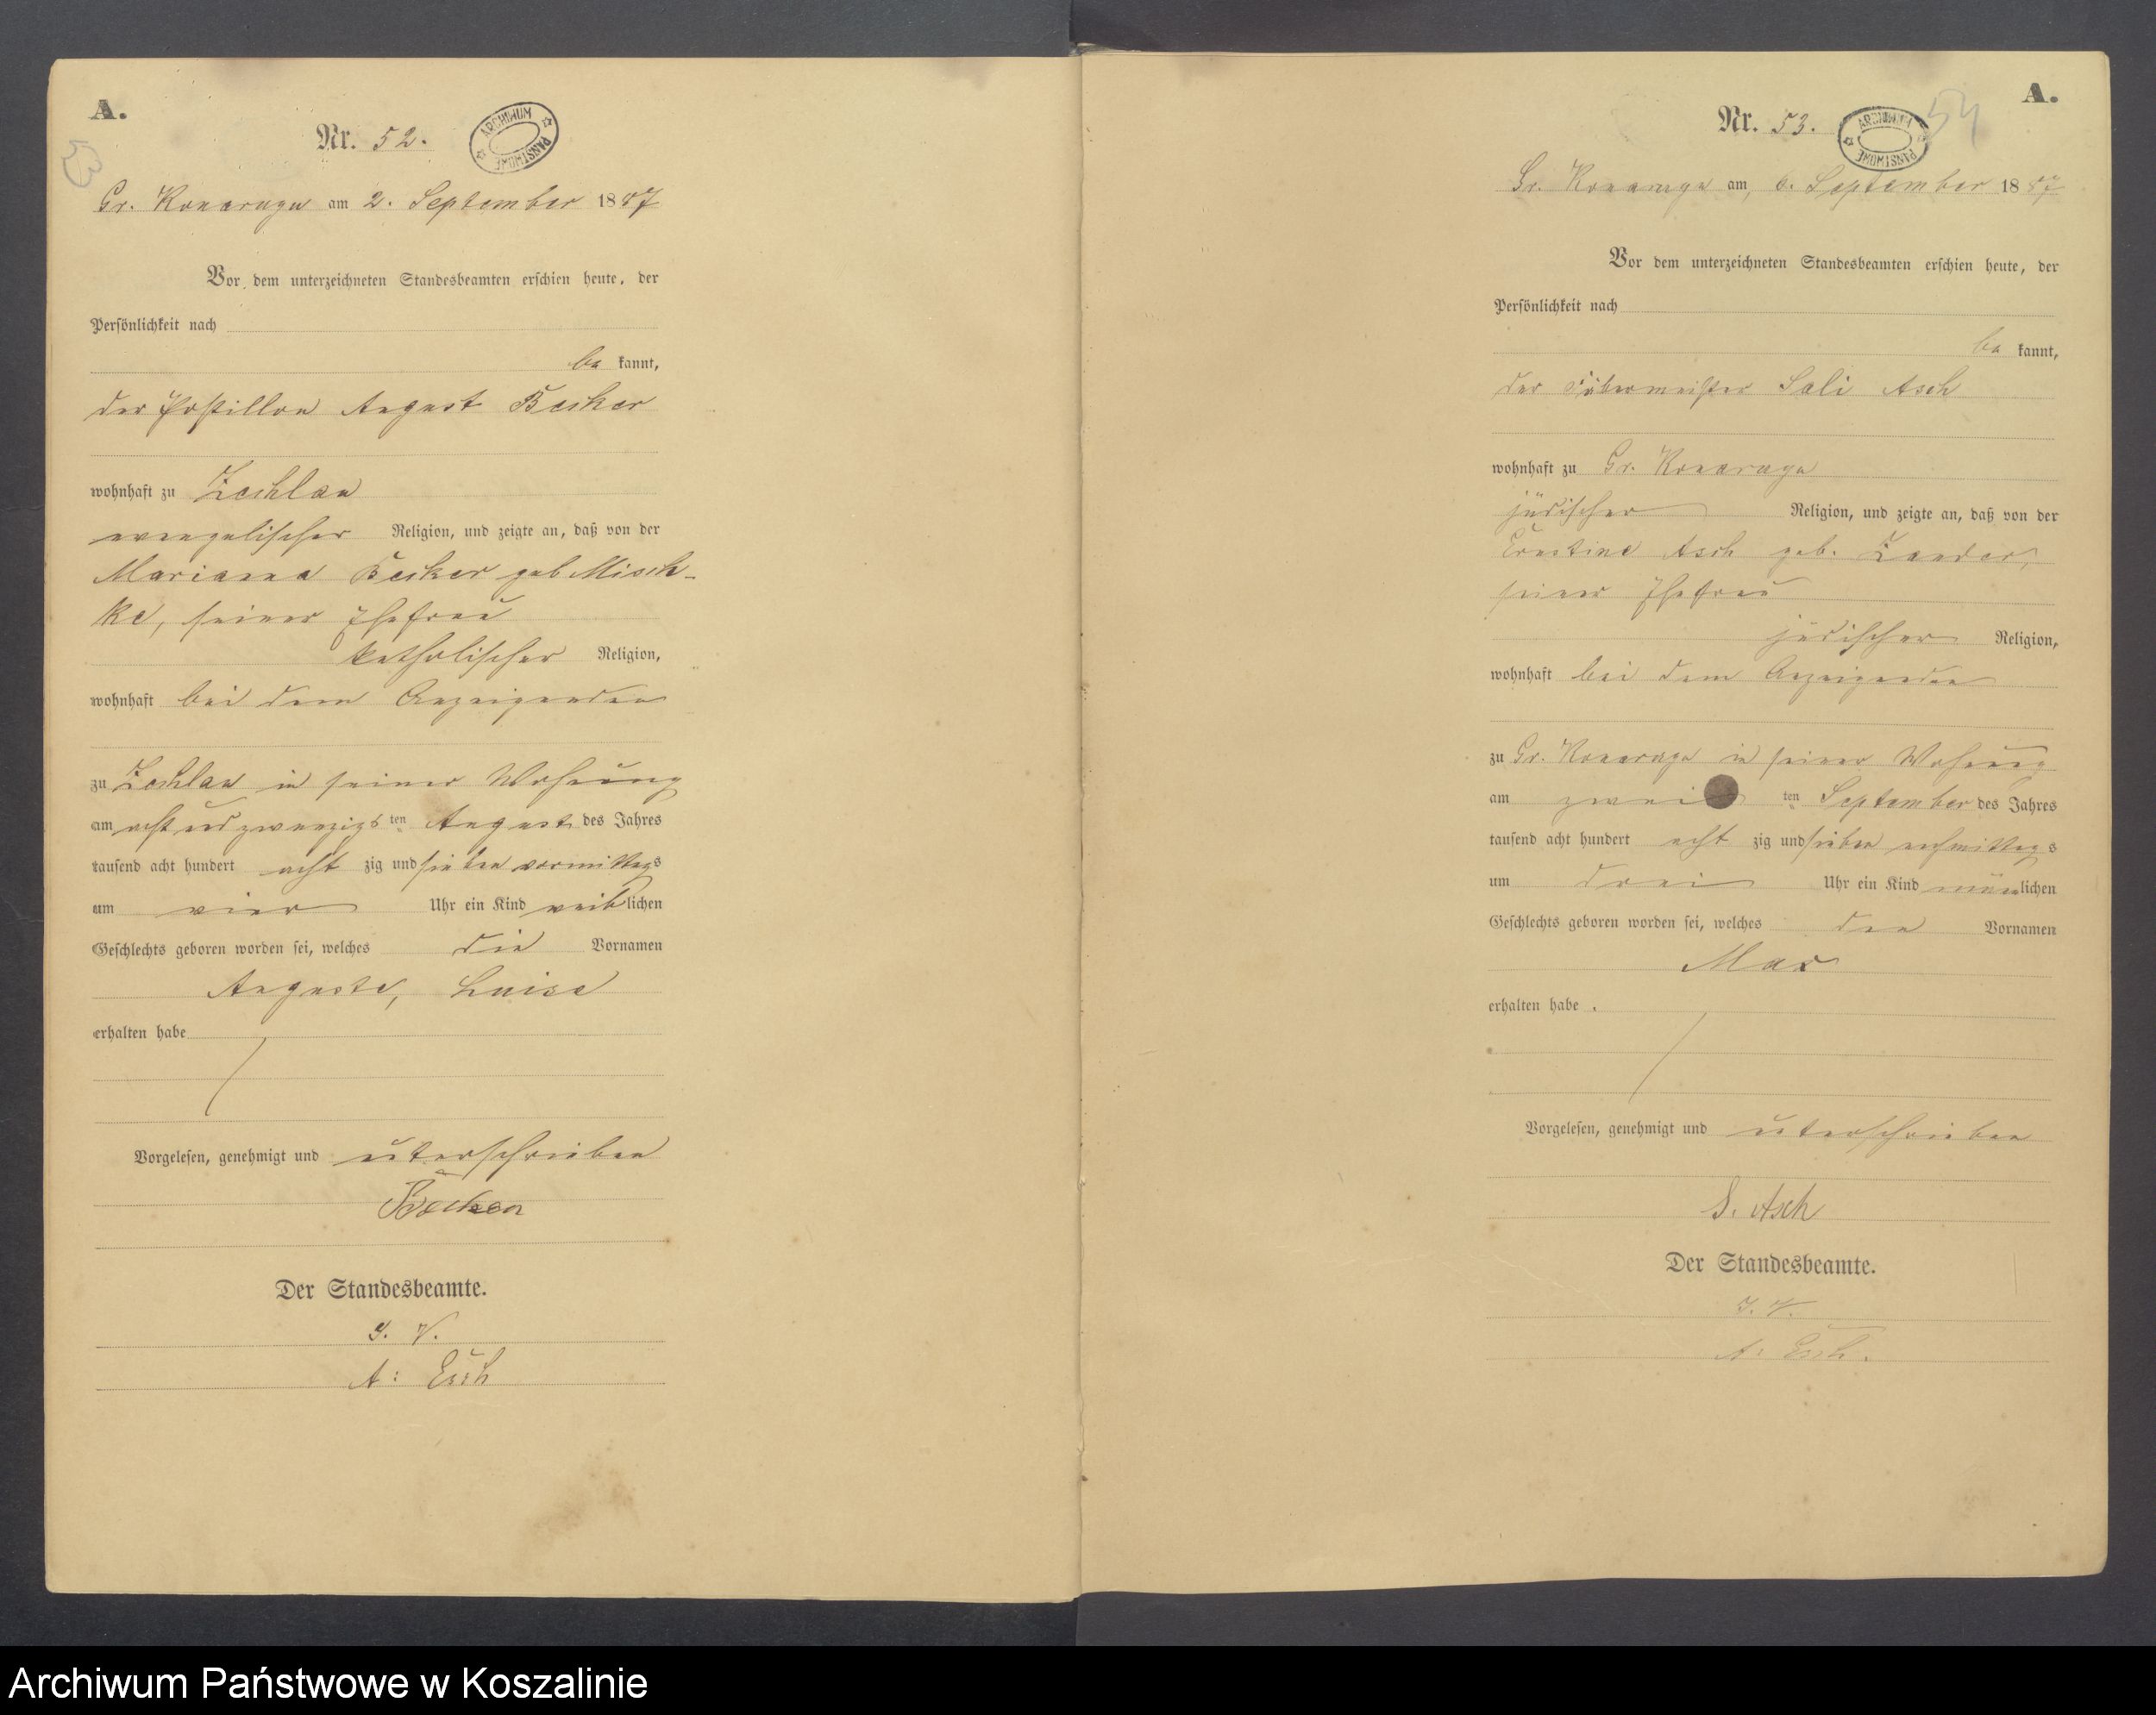 A.
Nr. 52.
ARCHIWUM PAŃSTWOWE
53
Gr. Konarzyn am 2. September 1887
Vor dem unterzeichneten Standesbeamten erschien heute, der
Persönlichkeit nach
be kannt,
der Postillon August Becker
wohnhaft zu Zechlau
evangelischer Religion, und zeigte an, daß von der
Marianna Becker geb Misch-
ke, seiner Ehefrau
katholischer Religion,
wohnhaft bei dem Anzeigenden
zu Zechlau in seiner Wohnung
am acht und zwanzigs ten August des Jahres
tausend acht hundert acht zig und sieben vormittags
um vier Uhr ein Kind weiblichen
Geschlechts geboren worden sei, welches die Vornamen
Auguste, Luise
erhalten habe
Vorgelesen, genehmigt und unterschrieben
Becker
Der Standesbeamte.
J. V.
A: Esch
A.
Nr. 53.
ARCHIWUM PAŃSTWOWE
54
Gr. Konarzyn am 6. September 1887
Vor dem unterzeichneten Standesbeamten erschien heute, der
Persönlichkeit nach
be kannt,
der Sali Asch
wohnhaft zu Gr. Konarzyn
jüdischer Religion, und zeigte an, daß von der
Ernstine Asch geb. Zander,
seiner Ehefrau
jüdischer Religion,
wohnhaft bei dem Anzeigenden
zu Gr. Konarzyn in seiner Wohnung
am zwei ten September des Jahres
tausend acht hundert acht zig und sieben nachmittags
um drei Uhr ein Kind männlichen
Geschlechts geboren worden sei, welches den Vornamen
Max
erhalten habe .
Vorgelesen, genehmigt und unterschrieben
S. Asch
Der Standesbeamte.
J. V.
A: Esch.
Archiwum Państwowe w Koszalinie